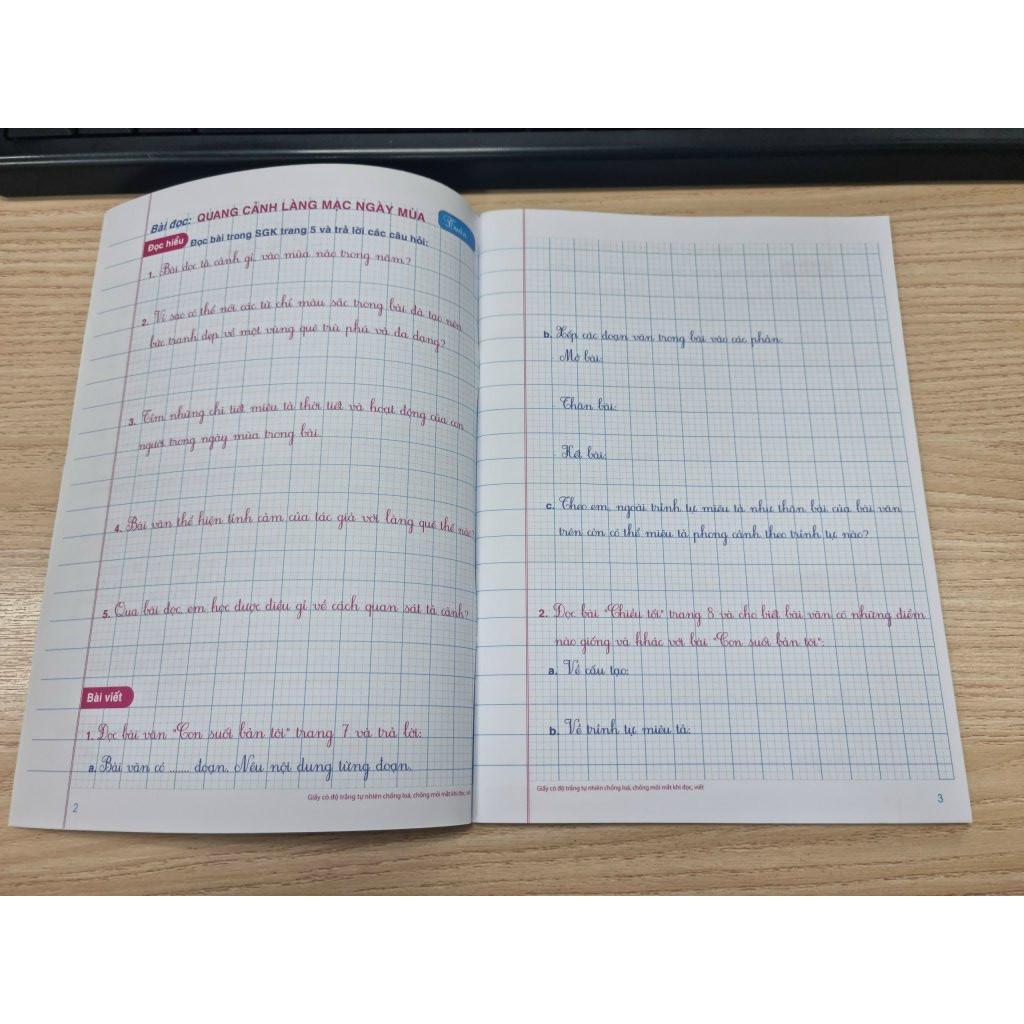 Bài đọc: QUANG CẢNH LÀNG MẠC NGÀY MÙA
Tuần
Đọc hiểu Đọc bài trong SGK trang 5 và trả lời các câu hỏi:
1. Bài đọc tả cảnh gì, vào mùa nào trong năm?
2. Vì sao có thể nói các từ chỉ màu sắc trong bài đã tạo nên
bức tranh đẹp về một vùng quê trù phú và đa dạng?
3. Tìm những chi tiết miêu tả thời tiết và hoạt động của con
người trong ngày mùa trong bài.
4. Bài văn thể hiện tình cảm của tác giả với làng quê thế nào?
5. Qua bài đọc, em học được điều gì về cách quan sát tả cảnh?
Bài viết
1. Đọc bài văn "Con suối bản tôi" trang 7 và trả lời:
a. Bài văn có ....... đoạn. Nêu nội dung từng đoạn.
Giấy có độ trắng tự nhiên chống loá, chống mỏi mắt khi đọc, viết
2
b. Xếp các đoạn văn trong bài vào các phần:
Mở bài:
Thân bài:
Kết bài:
c. Theo em, ngoài trình tự miêu tả như thân bài của bài văn
trên còn có thể miêu tả phong cảnh theo trình tự nào?
2. Đọc bài "Chiều tối" trang 8 và cho biết bài văn có những điểm
nào giống và khác với bài "Con suối bản tôi":
a. Về cấu tạo:
b. Về trình tự miêu tả:
Giấy có độ trắng tự nhiên chống loá, chống mỏi mắt khi đọc, viết
3